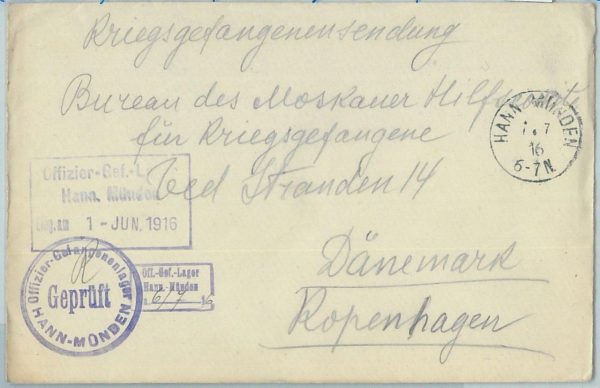 Kriegsgefangenensendung
Bureau des Moskauer Hilfskomite
für Kriegsgefangene
Ved Stranden 14
Dänemark
Kopenhagen
HANN. MÜNDEN
7.7
16
6-7N.
Offizier-Gef.-L
Hann. Münden
Eing. am 1 - JUN. 1916
Offizier-Gefangenenlager
Geprüft
HANN-MÜNDEN
Off.-Gef.-Lager
Hann.-Münden
6/7 16